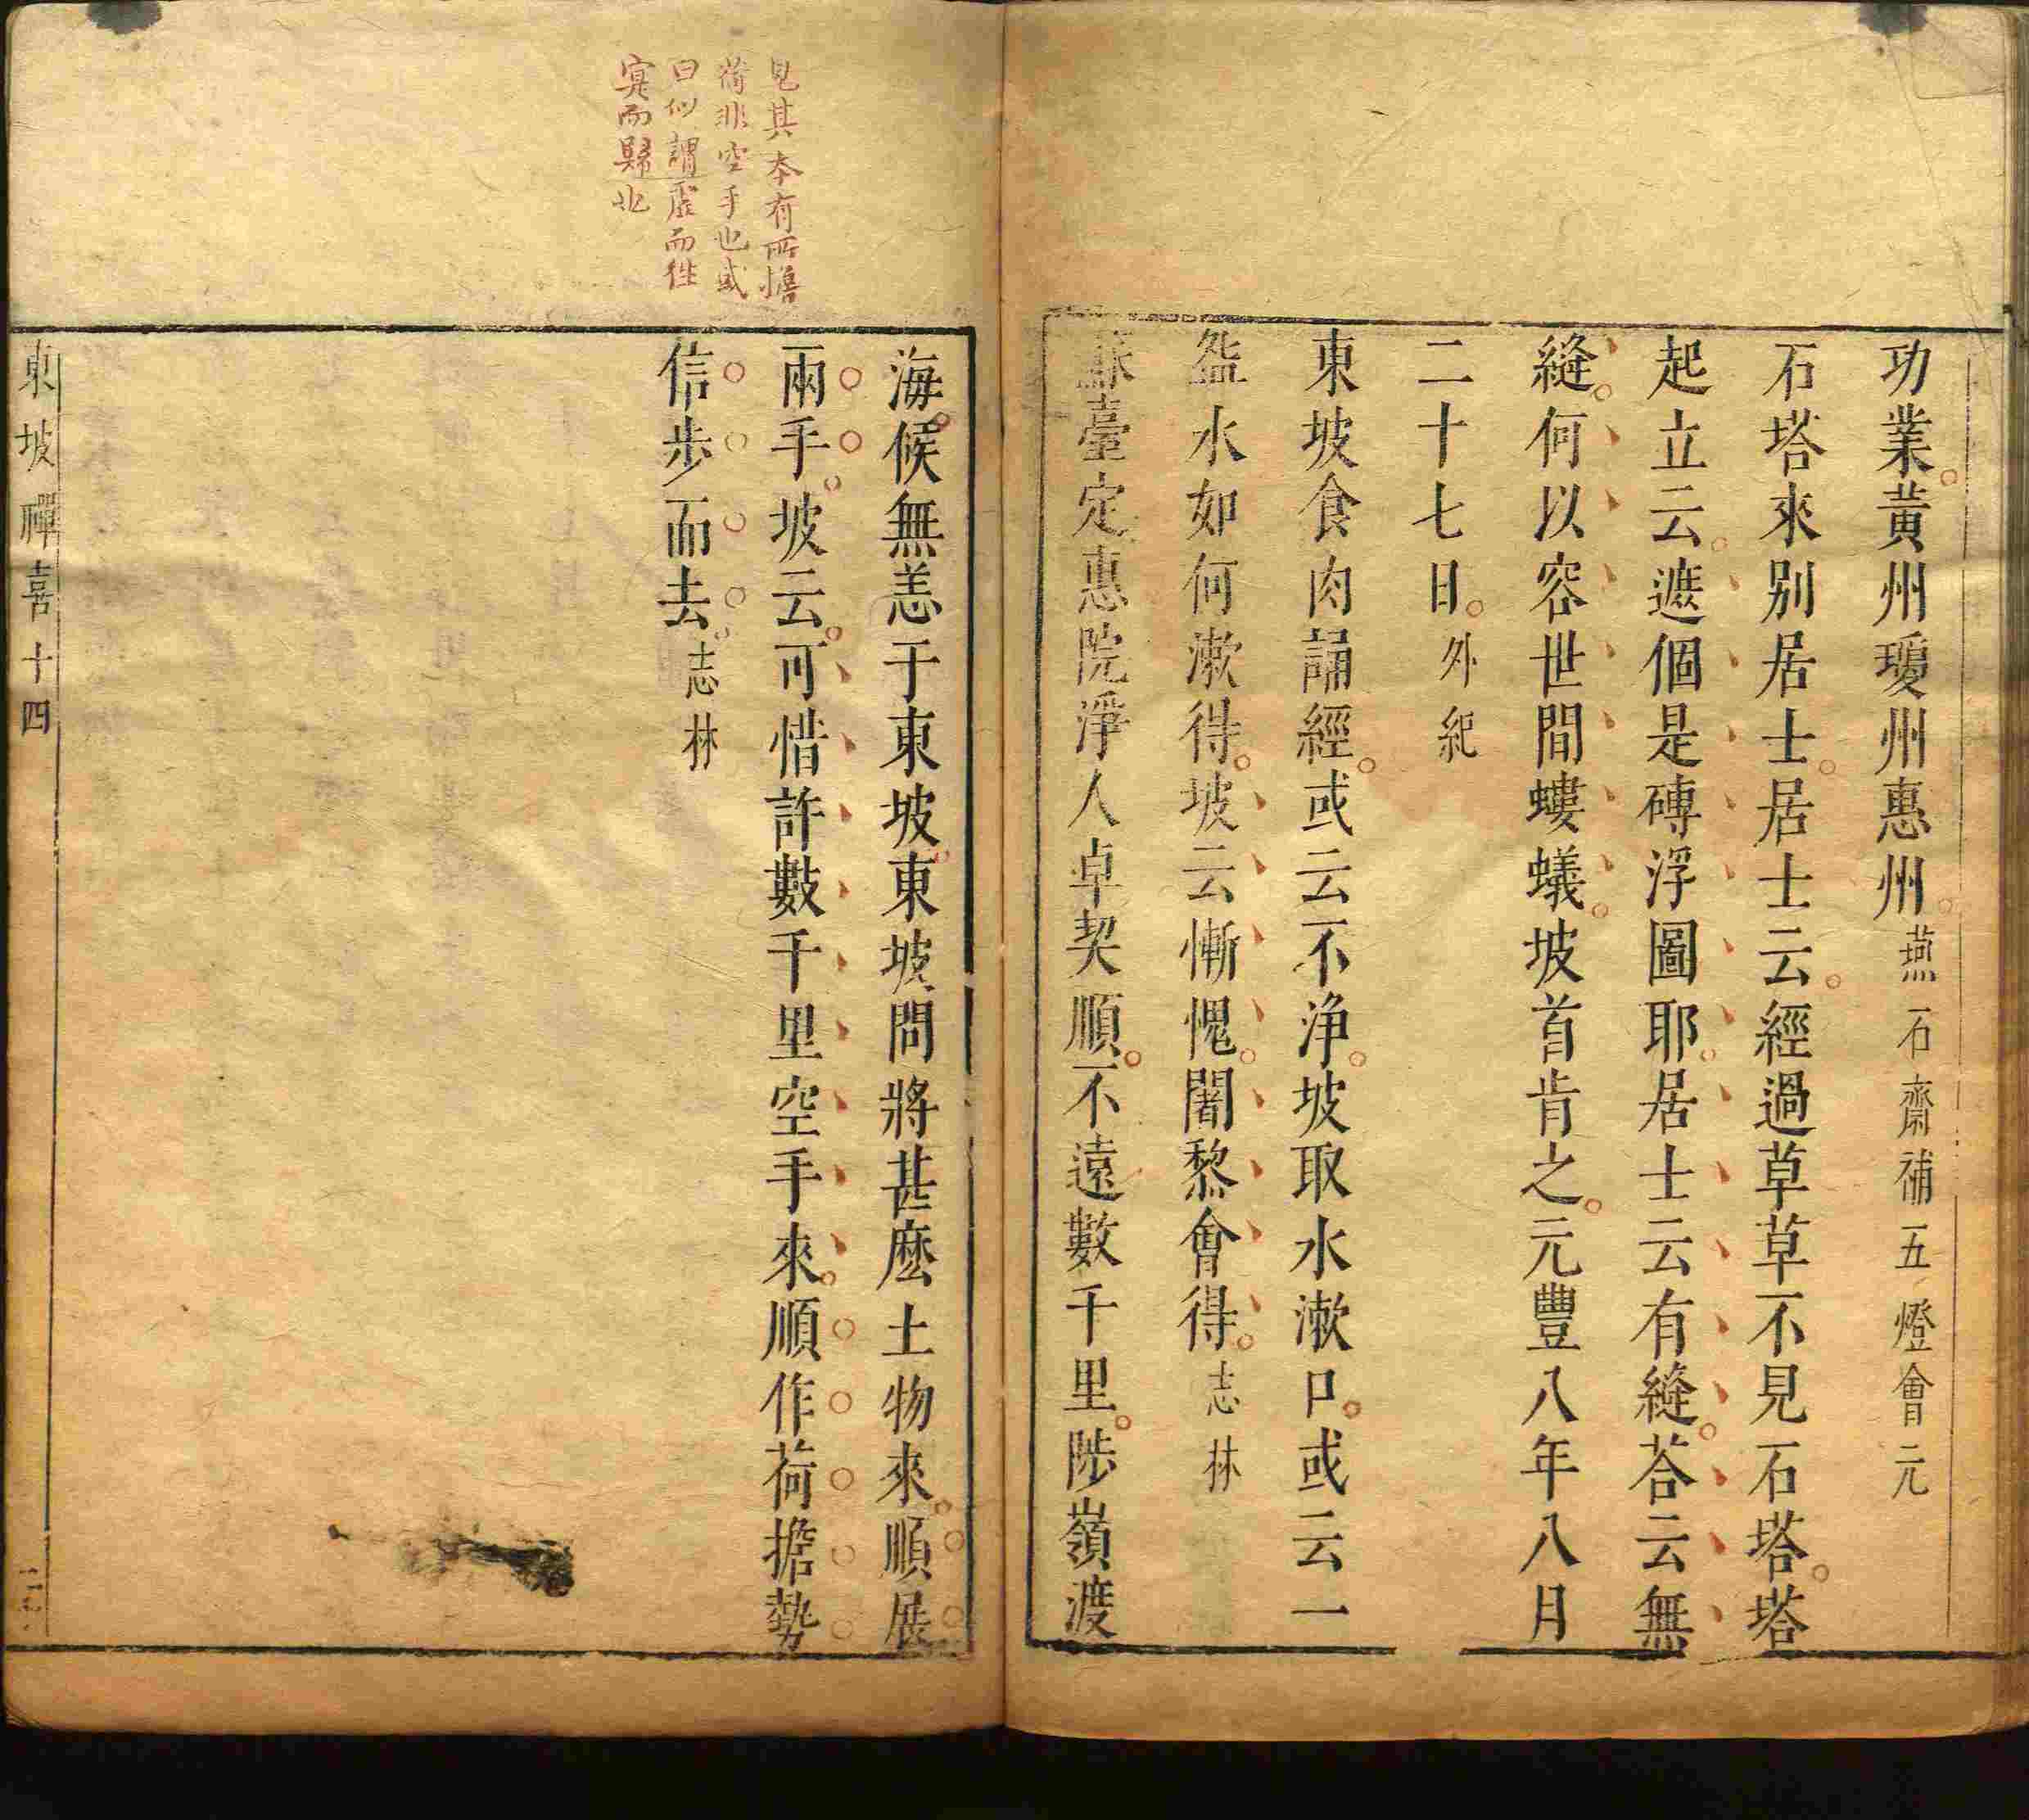 功業黄州瓊州惠州燕石齋補五燈會元
石塔來别居士居士云經過草草不見石塔塔
起立云遮個是磚浮圖耶居士云有縫荅云無
縫何以容世間螻蟻坡首肯之元豐八年八月
二十七日外紀
東坡食肉誦經或云不浄坡取水漱口或云一
盌水如何漱得坡云慚愧闍黎會得志林
蘇臺定惠院淨人卓契順不遠數千里陟嶺渡
海候無恙于東坡東坡問將甚麽土物來順展
兩手坡云可惜許數千里空手來順作荷擔勢
信步而去志林
見其本有所擔
荷非空手也或
曰似謂虛而徃
實而歸也
東坡禪喜十四